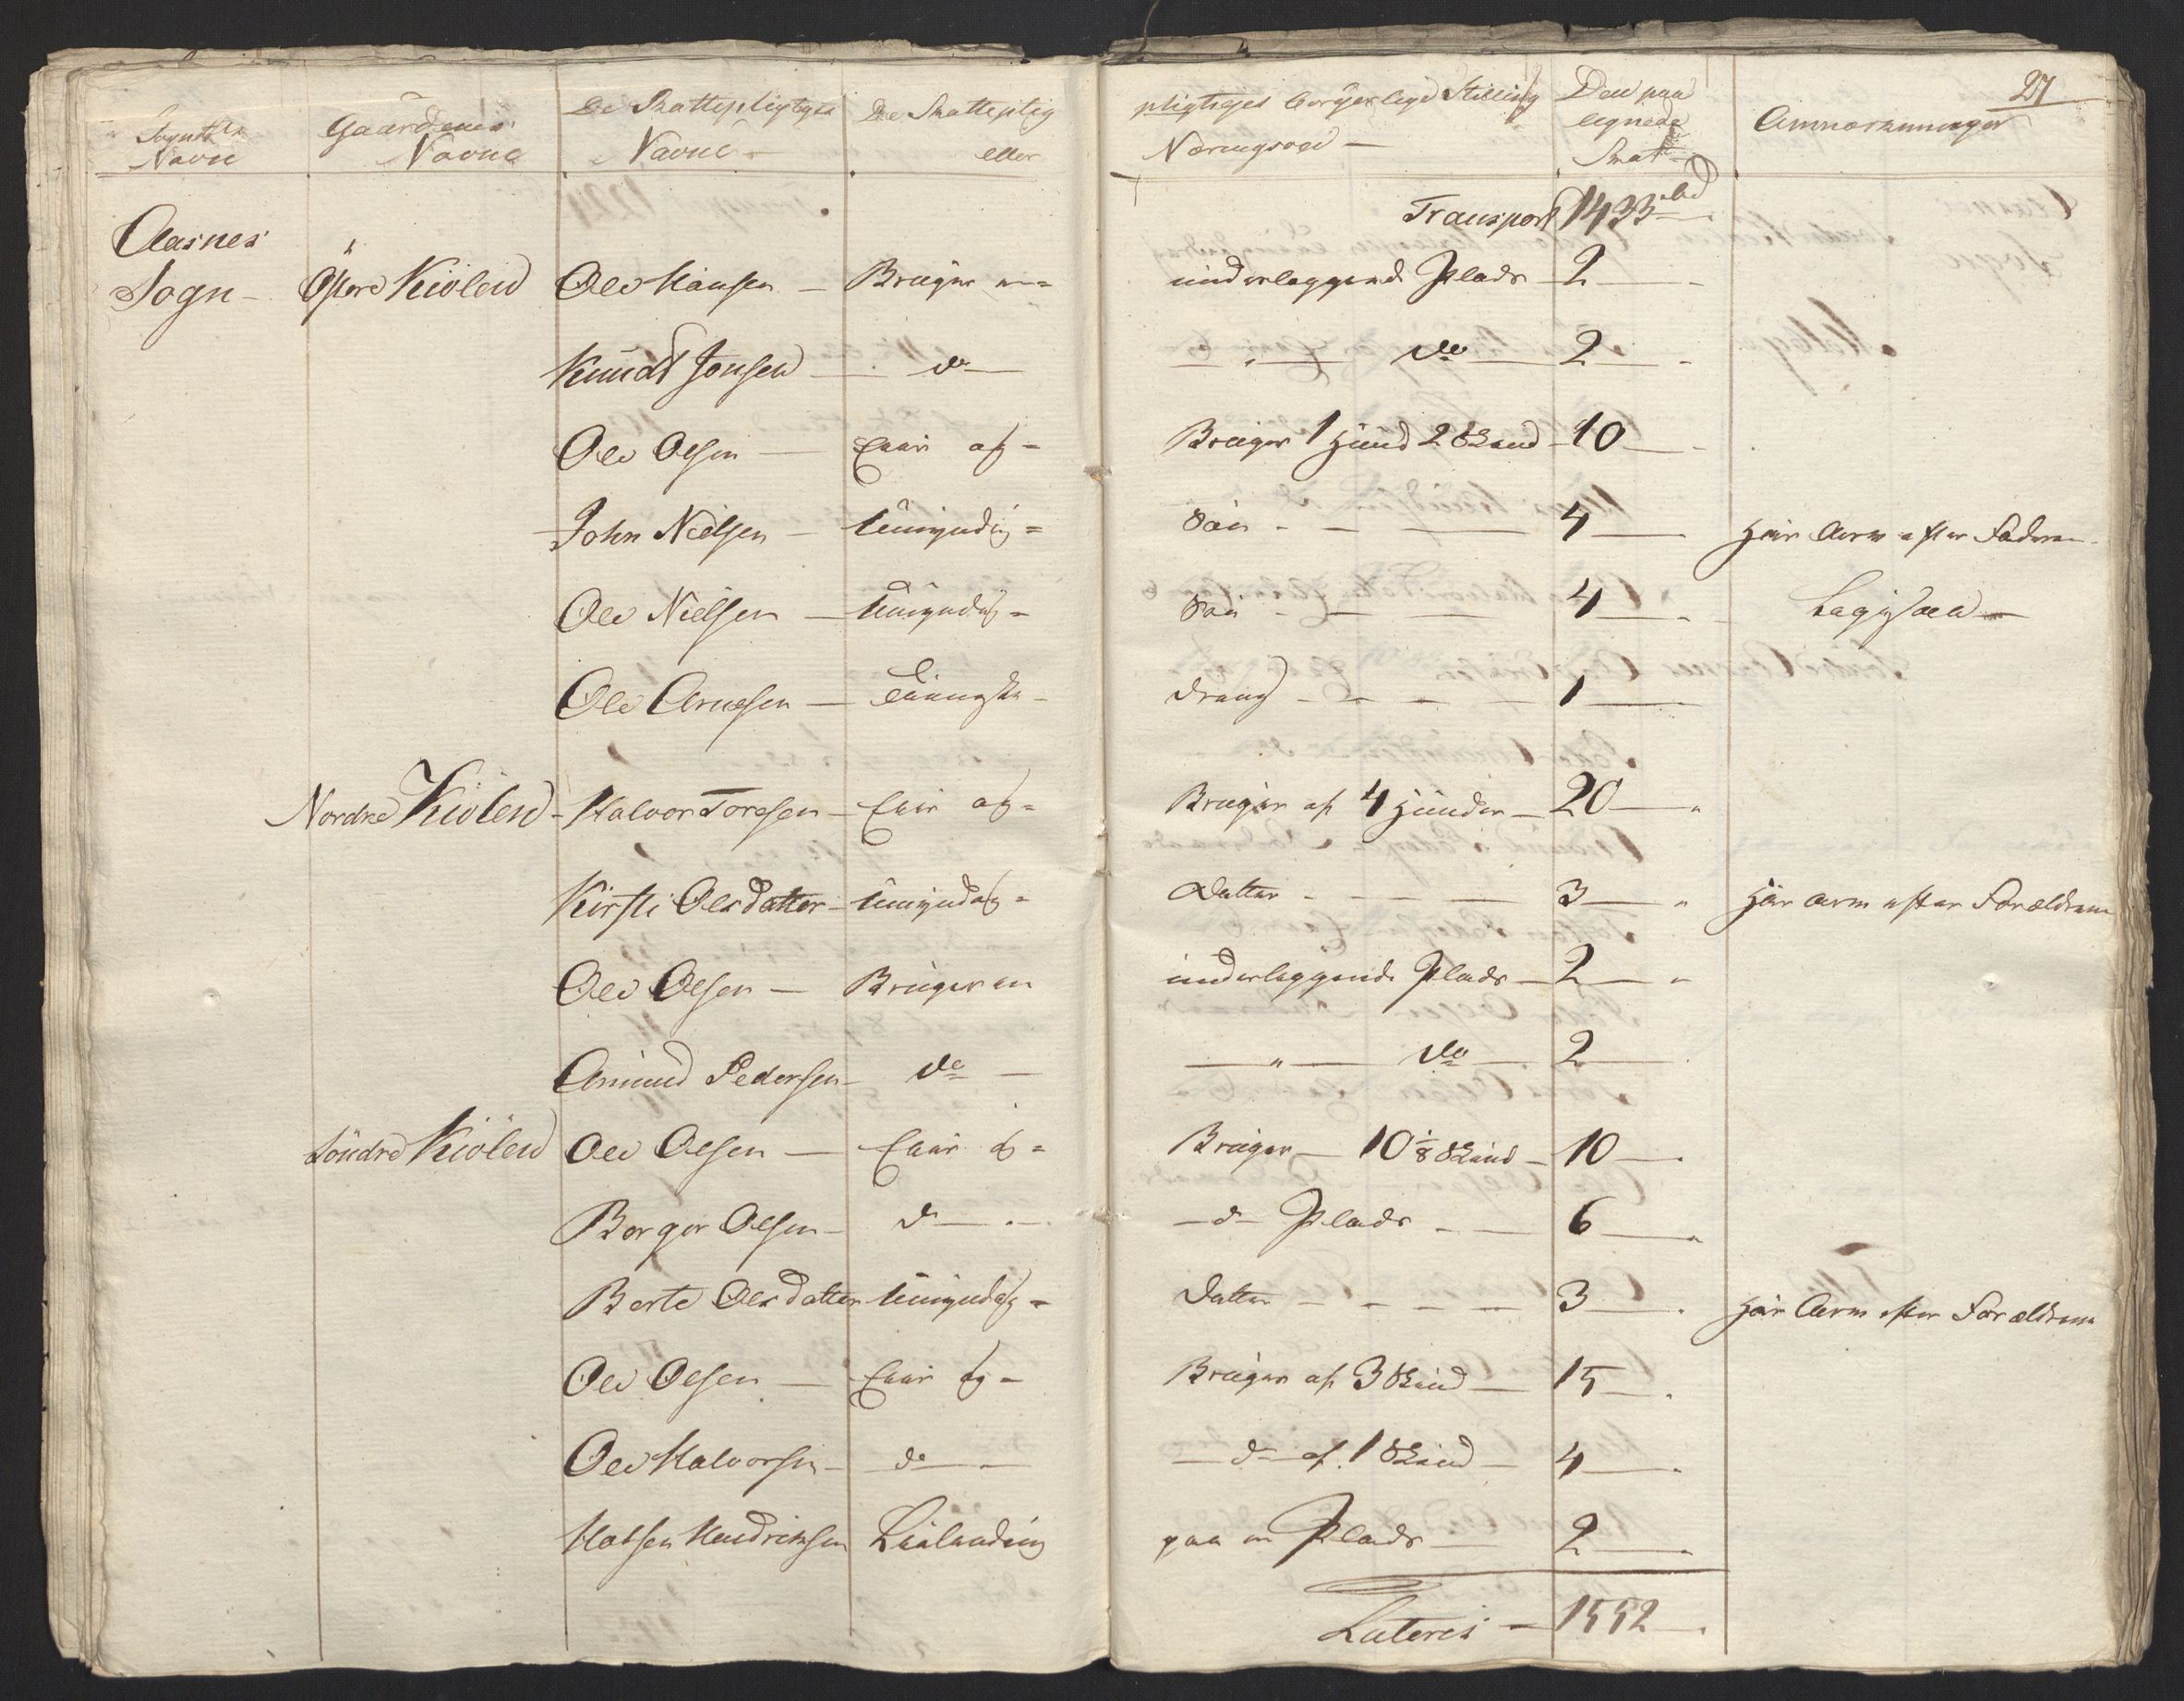 Sognets Navne | Gaardenes Navne | De Skattepligtiges Navne | De Skattepligtiges borgerlige Stilling eller Næringsvei | Den paalignede Skat | Anmærkninger | 27
Transport 1433
Aasnes Sogn - Østere Kiölen Ole Hansen - Bruger en = underliggende Plads - 2
Knudt Jonsen - do - do - 2
Ole Olsen - Eier og = Bruger 1 Hund 2 Skind - 10
John Nielsen - Umyndig = Søn - 4 har Arv efter Faderen
Ole Nielsen - Umyndig = Søn - 4 Ligesaa -
Ole Arnesen - Tieneste - Dreng - 1
Nordre Kiölen - Halvor Toresen - Eier og = Bruger af 4 Hunder - 20
Kirsti Olsdatter - Umyndig = Datter - 3 har Arv efter Forældrene
Ole Olsen - Bruger en underliggende Plads - 2
Amund Pedersen - do - do - 2
Söndre Kiölen Ole Olsen - Eier og = Bruger - 10 1/8 Skind - 10
Borger Olsen - do - do Plads - 6
Berte Olsdatter Umyndig = Datter - 3 har Arv efter Forældrene
Ole Olsen - Eier og = Bruger af 3 Skind - 15
Ole Halvorsen - do - do af 1 Skind - 4
Halsen Hendrichsen Leilænding paa en Plads - 2
Lateris - 1552